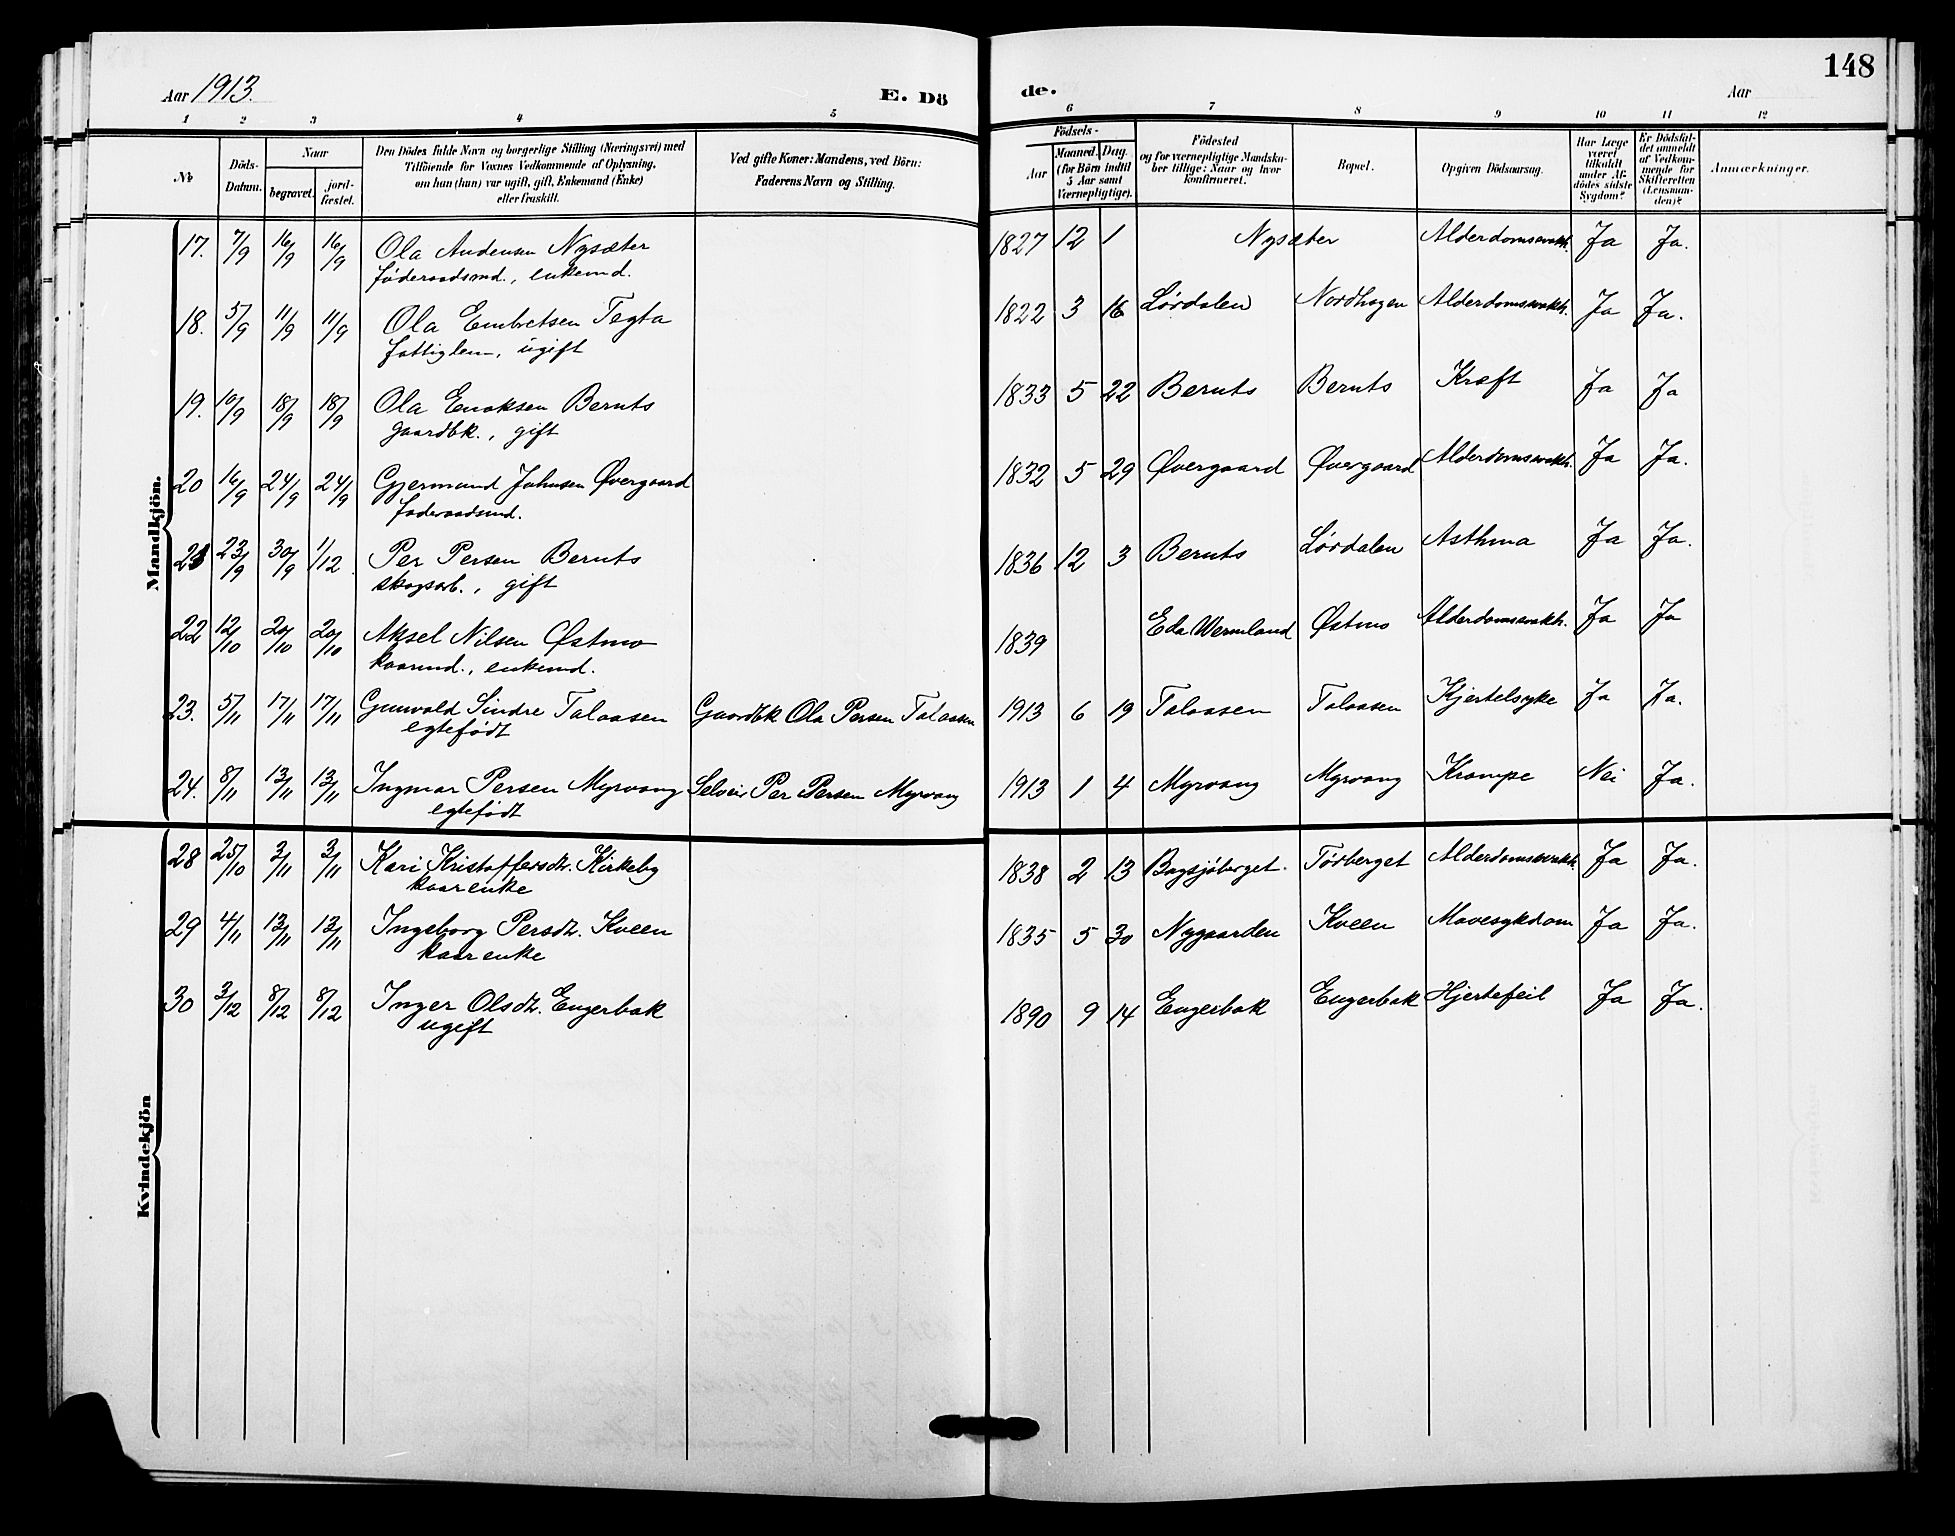 148
Aar 1913. E. Dö de. Aar
1 2 3 4 5 6 7 8 9 10 11 12
№
Döds-
Datum.
Naar
begravet.
jord-
fæstet.
Den Dödes fulde Navn og borgerlige Stilling (Næringsvei) med
Tilföiende for Voxnes Vedkommende af Oplysning,
om han (hun) var ugift, gift, Enkemand (Enke)
eller fraskilt.
Ved gifte Koner: Mandens, ved Börn:
Faderens Navn og Stilling.
Födsels-
Aar
Maaned. Dag.
(for Börn indtil
5 Aar samt
Værnepligtige).
Födested
og for værnepligtige Mandska-
ber tillige: Naar og hvor
konfirmeret.
Bopæl.
Opgiven Dödsaarsag.
Har Læge
været
tilkaldt
under Af-
dödes sidste
Sygdom?
Er Dödsfal-
det anmeldt
af Vedkom-
mende for
Skifteretten
(Lensman-
den)?
Anmærkninger.
Mandkjön.
17. 7/9 16/9 16/9 Ola Andensen Nysæter 1827 12 1 Nysæter Alderdomssvakh. Ja Ja.
føderaadsmd., enkemd.
18. 5/9 11/9 11/9 Ola Embretsen Tegta 1822 3 16 Lørdalen Nordhagen Alderdomssvakh. Ja Ja.
fattiglem, ugift
19. 10/9 18/9 18/9 Ola Enoksen Bernts 1833 5 22 Bernts Bernts Kræft Ja Ja
gaardbk., gift
20 16/9 24/9 24/9 Gjermund Johnsen Øvergaard 1832 5 29 Øvergaard Øvergaard Alderdomssvakh. Ja Ja.
føderaadsmd.
21 23/9 30/9 1/12 Per Persen Bernts 1836 12 3 Bernts Lørdalen Asthma Ja Ja.
skogsarb., gift
22 12/10 20/10 20/10 Aksel Nilsen Østmo 1839 Eda Wermland Østmo Alderdomssvakh. Ja Ja
kaarmd., enkemd.
23. 5/11 17/11 17/11 Gunvald Sindre Talaasen Gaardbk Ola Persen Talaasen 1913 6 19 Talaasen Talaasen Kjertelsyke Ja Ja.
egtefødt
24. 8/11 13/11 13/11 Ingmar Persen Myrvang Selveir Per Persen Myrvang 1913 1 4 Myrvang Myrvang Krampe Nei Ja.
egtefødt
Kvindekjön
28 25/10 3/11 3/11 Kari Kristoffersdt. Kirkeby 1838 2 13 Bogsjøberget. Tørberget Alderdomssvakh. Ja Ja.
kaarenke
29 4/11 13/11 13/11 Ingeborg Persdt. Kveen 1835 5 30 Nygaarden Kveen Mavesykdom Ja Ja.
kaarenke
30 3/12 8/12 8/12 Inger Olsdt. Engerbak 1890 9 14 Engerbak Engerbak Hjertefeil Ja Ja.
ugift